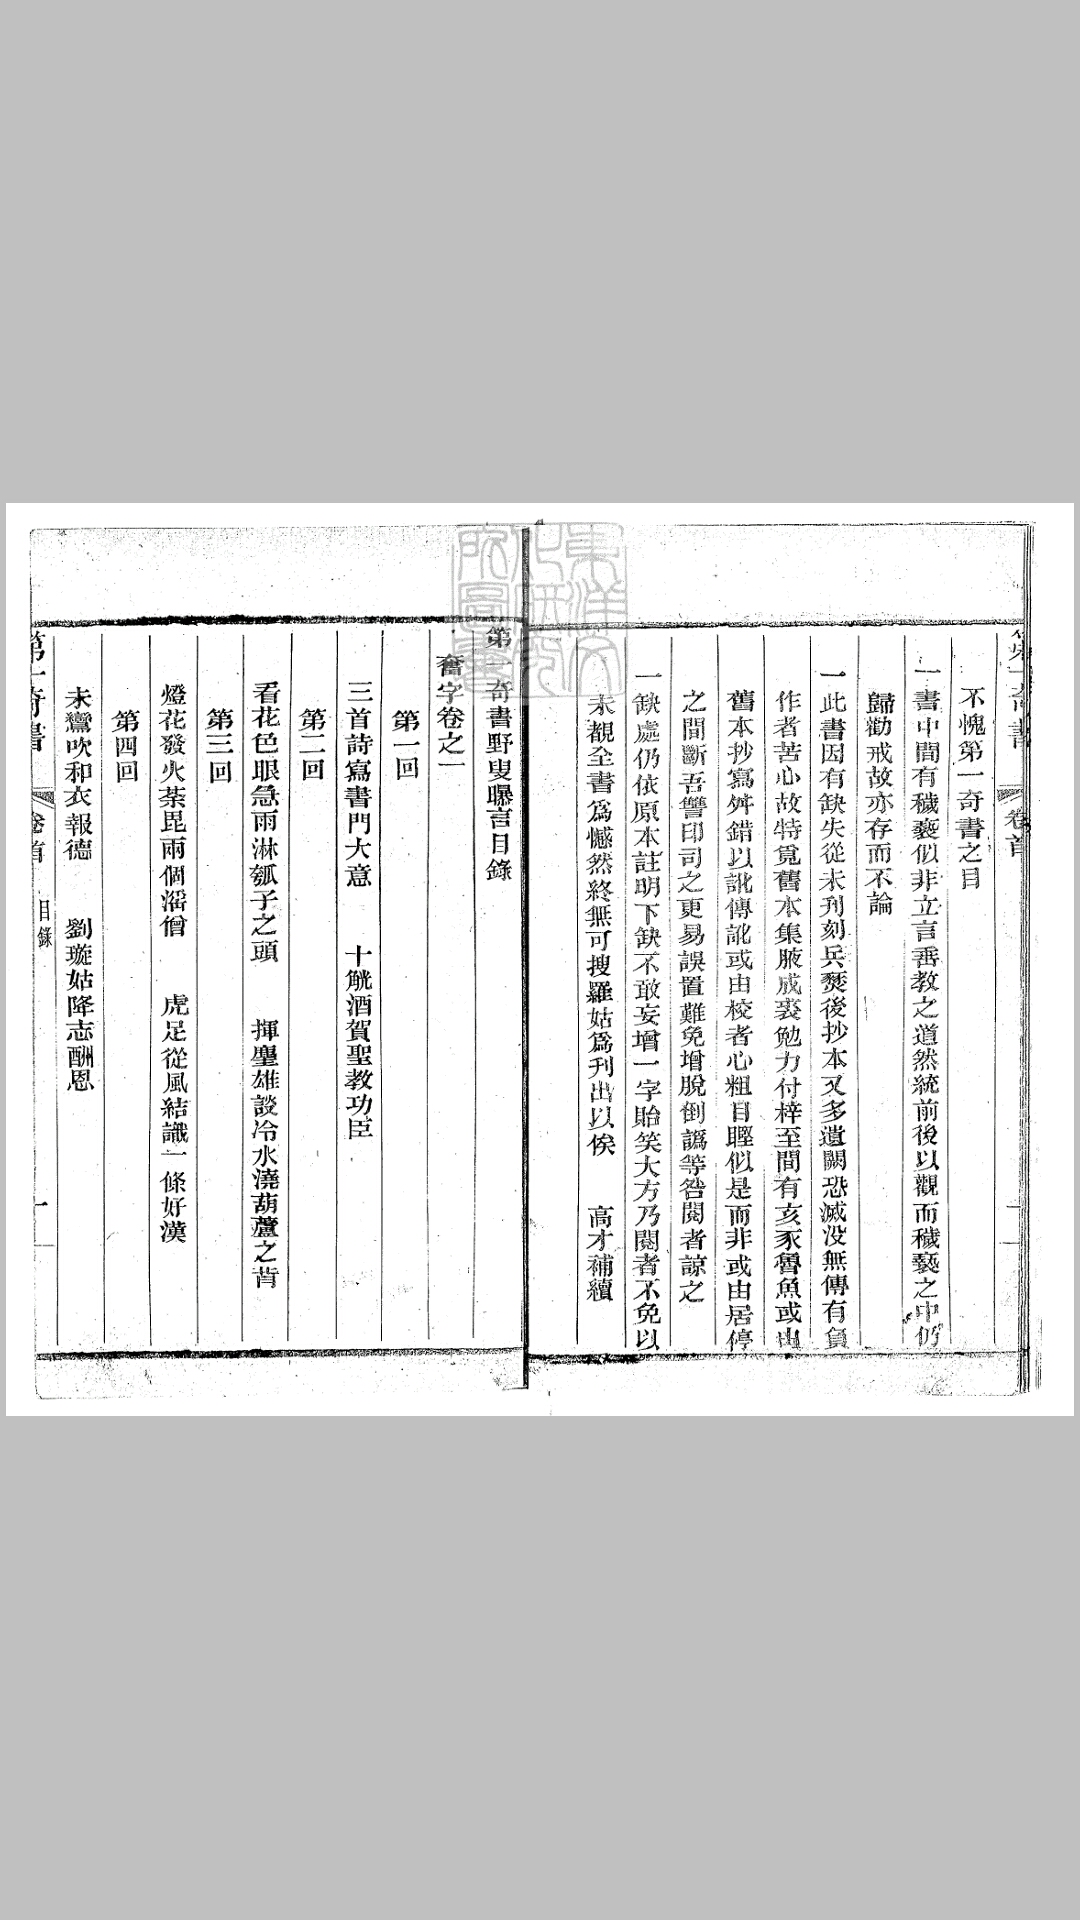 第一奇書 卷首
不愧第一奇書之目
一書中間有穢褻似非立言垂教之道然統前後以觀而穢褻之中仍
歸勸戒故亦存而不論
一此書因有缺失從未刋刻兵燹後抄本又多遺闕恐滅没無傳有負
作者苦心故特覓舊本集腋成裘勉力付梓至間有亥豕魯魚或由
舊本抄寫舛錯以訛傳訛或由校者心粗目瞪似是而非或由居停
之間斷吾讐印司之更易誤置難免增脫倒譌等咎閱者諒之
一缺處仍依原本註明下缺不敢妄增一字貽笑大方乃閱者不免以
未觀全書爲憾然終無可搜羅姑爲刋出以俟 高才補續
第一奇書野叟曝言目錄
奮字卷之一
第一回
三首詩寫書門大意 十觥酒賀聖教功臣
第二回
看花色眼急雨淋瓠子之頭 揮麈雄談冷水澆葫蘆之背
第三回
燈花發火荼毘兩個滛僧 虎足從風結識一條好漢
第四回
未鸞吹和衣報德 劉璇姑降志酬恩
第一奇書 卷首 目錄 一